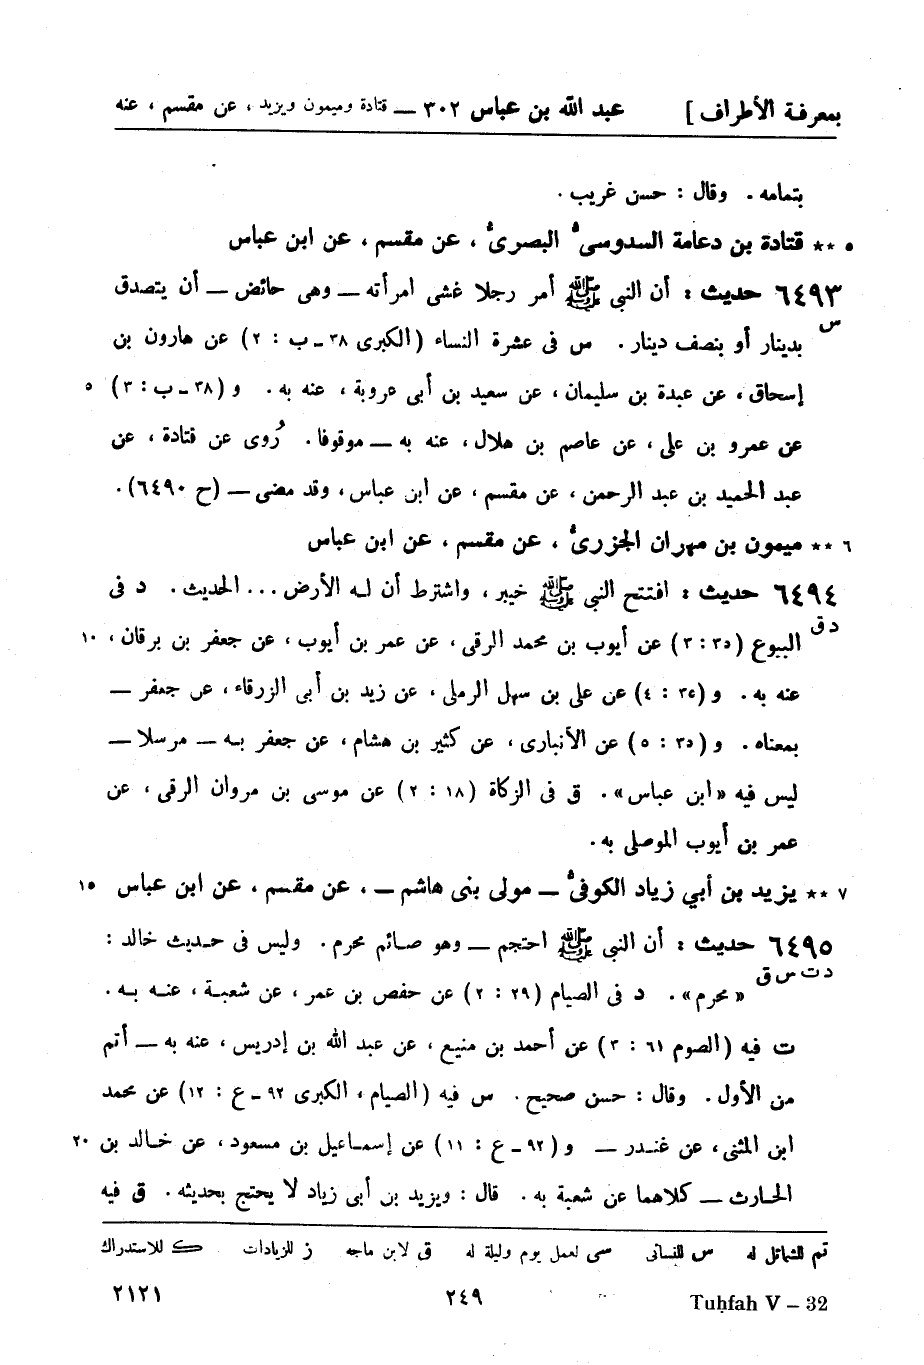 بمعرفة الأطراف ] عبد الله بن عباس ٣٠٢ — قتادة وميمون ويزيد ، عن مقسم ، عنه
بتمامه . وقال : حسن غريب .
٥ ** قتادة بن دعامة السدوسىُّ البصرىُّ ، عن مقسم ، عن ابن عباس
٦٤٩٣ حديث : أن النبي ﷺ أمر رجلا غشى امرأته — وهى حائض — أن يتصدق
س بدينار أو بنصف دينار . س فى عشرة النساء (الكبرى ٣٨ - ب : ٢) عن هارون بن
إسحاق ، عن عبدة بن سليمان ، عن سعيد بن أبى عروبة ، عنه به . و (٣٨ - ب : ٣) ٥
عن عمرو بن على ، عن عاصم بن هلال ، عنه به — موقوفا . رُوى عن قتادة ، عن
عبد الحميد بن عبد الرحمن ، عن مقسم ، عن ابن عباس ، وقد مضى — (ح ٦٤٩٠) .
٦ ** ميمون بن مهران الجزرىُّ ، عن مقسم ، عن ابن عباس
٦٤٩٤ حديث : افتتح النبي ﷺ خيبر ، واشترط أن له الأرض ... الحديث . د فى
د ق البيوع (٣٥ : ٣) عن أيوب بن محمد الرقى ، عن عمر بن أيوب ، عن جعفر بن برقان ، ١٠
عنه به . و (٣٥ : ٤) عن على بن سهل الرملى ، عن زيد بن أبى الزرقاء ، عن جعفر —
بمعناه . و (٣٥ : ٥) عن الأنبارى ، عن كثير بن هشام ، عن جعفر به — مرسلا —
ليس فيه «ابن عباس» . ق فى الزكاة (١٨ : ٢) عن موسى بن مروان الرقى ، عن
عمر بن أيوب الموصلى به .
٧ ** يزيد بن أبي زياد الكوفىُّ — مولى بنى هاشم — ، عن مقسم ، عن ابن عباس ١٥
٦٤٩٥ حديث : أن النبي ﷺ احتجم — وهو صائم محرم . وليس فى حديث خالد :
د ت س ق «محرم» . د فى الصيام (٢٩ : ٢) عن حفص بن عمر ، عن شعبة ، عنه به .
ت فيه (الصوم ٦١ : ٣) عن أحمد بن منيع ، عن عبد الله بن إدريس ، عنه به — أتم
من الأول . وقال : حسن صحيح . س فيه (الصيام ، الكبرى ٩٢ - ع : ١٢) عن محمد
ابن المثنى ، عن غندر — و (٩٢ - ع : ١١) عن إسماعيل بن مسعود ، عن خالد بن ٢٠
الحارث — كلاهما عن شعبة به . قال : ويزيد بن أبى زياد لا يحتج بحديثه . ق فيه
تم للشمائل له س للنسائى سى لعمل يوم وليلة له ق لابن ماجه ز للزيادات ك للاستدراك
Tuḥfah V – 32 ٢٤٩ ٢١٢١